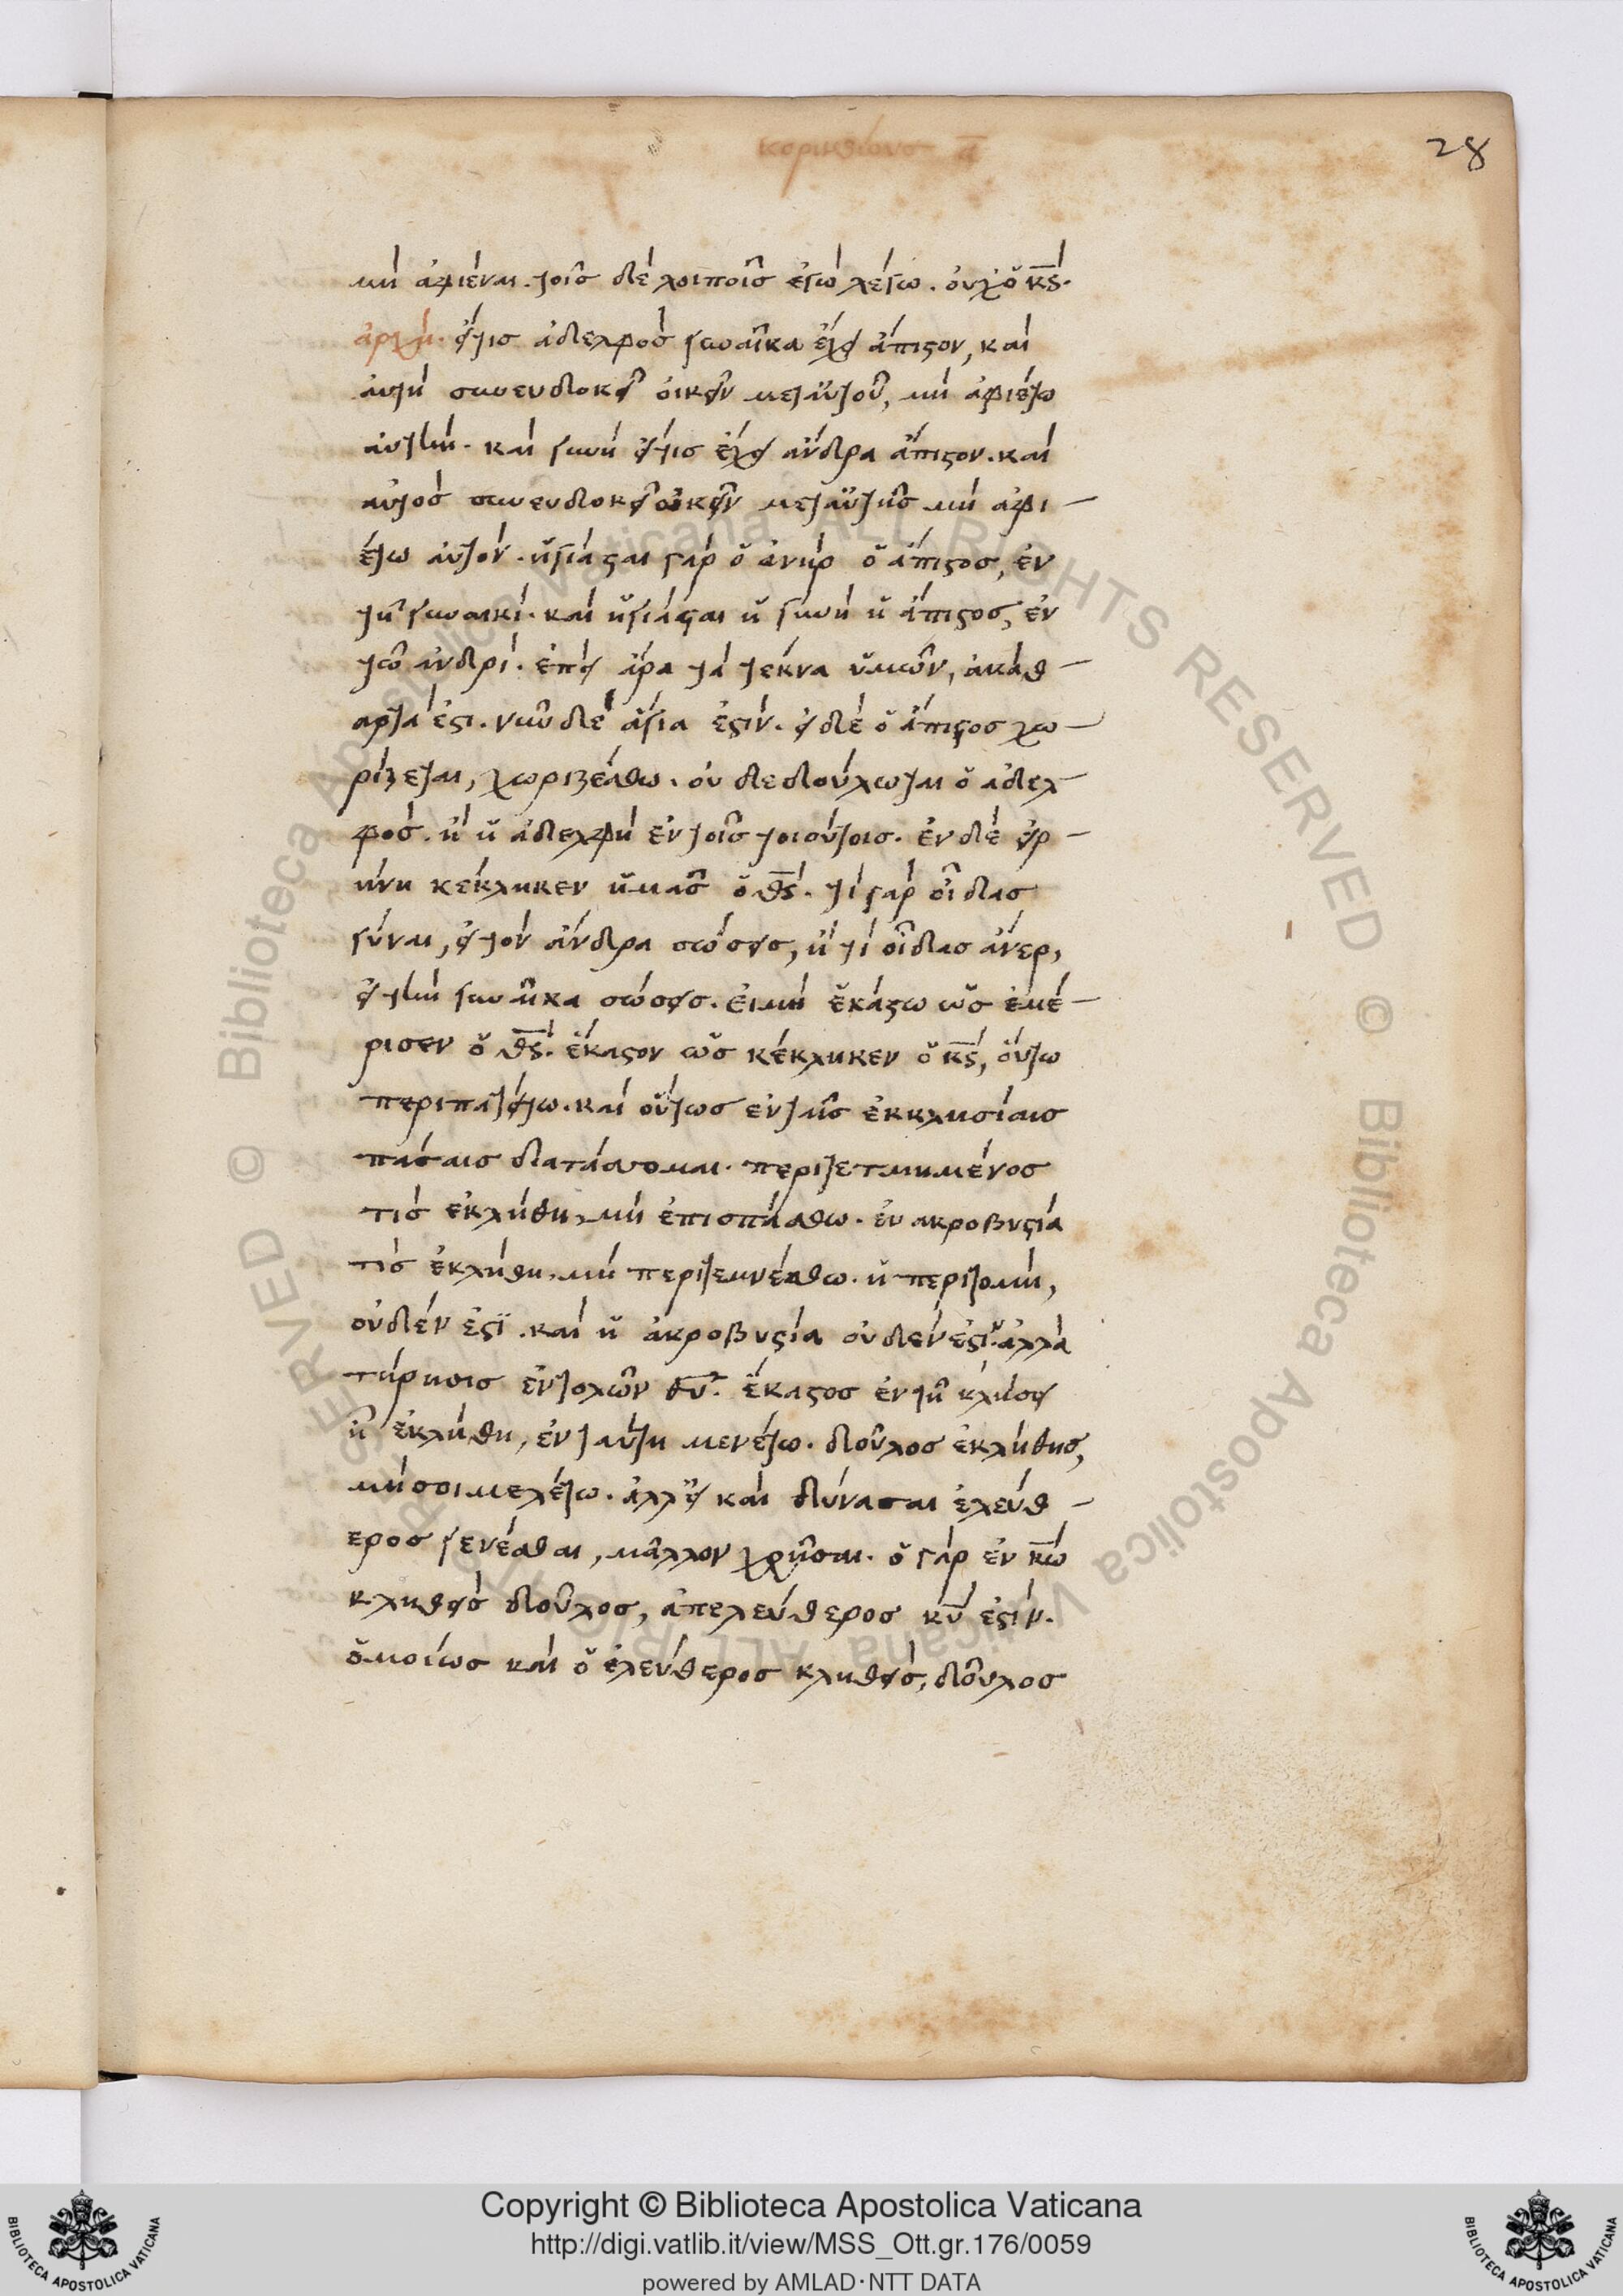 κορινθίους α
28
μὴ ἀφιέναι. τοῖς δὲ λοιποῖς ἐγὼ λέγω. οὐχ ὁ κς.
ἀρχη. εἴ τις ἀδελφὸς γυναῖκα ἔχει ἄπιστον, καὶ
αὐτὴ συνευδοκεῖ οἰκεῖν μετ αὐτοῦ, μὴ ἀφιέτω
αὐτήν. καὶ γυνὴ εἴ τις ἔχει ἄνδρα ἄπιστον. καὶ
αὐτὸς συνευδοκεῖ οἰκεῖν μετ αὐτῆς μὴ ἀφι-
έτω αὐτόν. ἡγίασται γὰρ ὁ ἀνὴρ ὁ ἄπιστος, ἐν
τῆ γυναικί. καὶ ἡγίασται ἡ γυνὴ ἡ ἄπιστος, ἐν
τῶ ἀνδρί. ἐπεὶ ἄρα τὰ τέκνα ὑμῶν, ἀκάθ-
αρτα ἐστι. νῦν δὲ ἅγια ἐστιν. εἰ δὲ ὁ ἄπιστος χω-
ρίζεται, χωριζέσθω. οὐ δεδούλωται ὁ ἀδελ-
φὸς. ἢ ἡ ἀδελφὴ ἐν τοῖς τοιούτοις. ἐν δὲ εἰρ-
ήνη κέκληκεν ἡμᾶς ὁ θς. τί γὰρ οἶδας
γύναι, εἰ τὸν ἄνδρα σώσεις, ἢ τί οἶδας ἄνερ,
εἰ τὴν γυναῖκα σώσεις. εἰ μὴ ἑκάστω ὡς ἐμέ-
ρισεν ὁ θς. ἕκαστον ὡς κέκληκεν ὁ κς, οὕτω
περιπατείτω. καὶ οὕτως ἐν ταῖς ἐκκλησίαις
πάσαις διατάσσομαι. περιτετμημένος
τὶς ἐκλήθη, μὴ ἐπισπάσθω. ἐν ἀκροβυστία
τὶς ἐκλήθη, μὴ περιτεμνέσθω. ἡ περιτομὴ,
οὐδέν ἐστι. καὶ ἡ ἀκροβυστία οὐδέν ἐστι. ἀλλὰ
τήρησις ἐντολῶν θυ. ἕκαστος ἐν τῆ κλήσει
ἧ ἐκλήθη, ἐν ταύτη μενέτω. δοῦλος ἐκλήθης,
μή σοι μελέτω. ἀλλ εἰ καὶ δύνασαι ἐλεύθ-
ερος γενέσθαι, μᾶλλον χρῆσαι. ὁ γὰρ ἐν κω
κληθεὶς δοῦλος, ἀπελεύθερος κυ ἐστίν.
ὁμοίως καὶ ὁ ἐλεύθερος κληθεὶς, δοῦλος
Copyright © Biblioteca Apostolica Vaticana
http://digi.vatlib.it/view/MSS_Ott.gr.176/0059
powered by AMLAD·NTT DATA